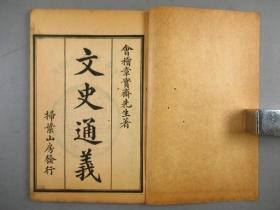 會稽章實齋先生著
文史通義
掃葉山房發行